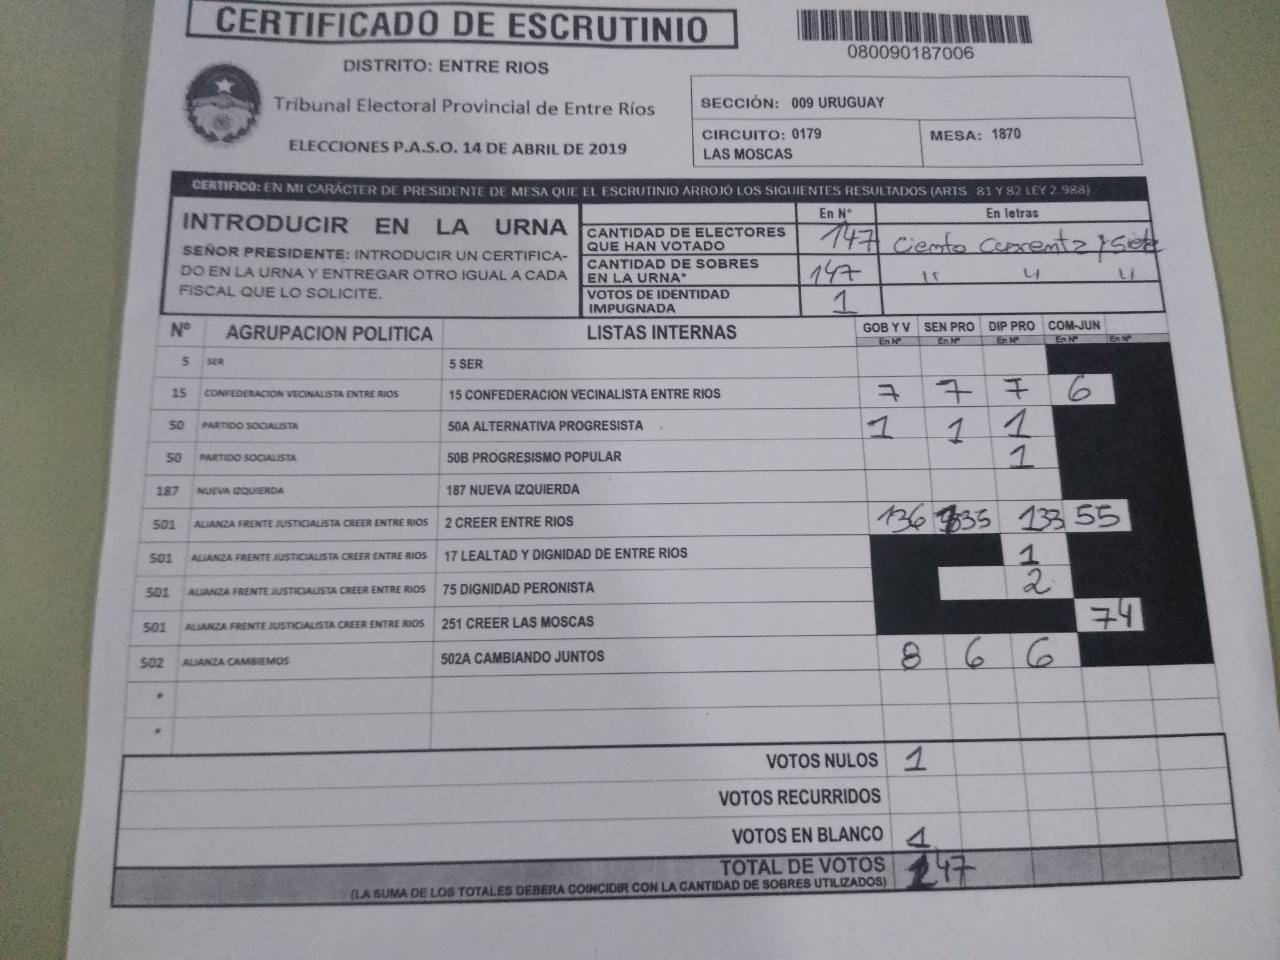 CERTIFICADO DE ESCRUTINIO
080090187006
DISTRITO: ENTRE RIOS
Tribunal Electoral Provincial de Entre Ríos
ELECCIONES P.A.S.O. 14 DE ABRIL DE 2019
SECCIÓN: 009 URUGUAY
CIRCUITO: 0179
LAS MOSCAS
MESA: 1870
CERTIFICO: EN MI CARÁCTER DE PRESIDENTE DE MESA QUE EL ESCRUTINIO ARROJÓ LOS SIGUIENTES RESULTADOS (ARTS. 81 Y 82 LEY 2.988)
INTRODUCIR EN LA URNA
SEÑOR PRESIDENTE: INTRODUCIR UN CERTIFICA-
DO EN LA URNA Y ENTREGAR OTRO IGUAL A CADA
FISCAL QUE LO SOLICITE.
En N° En letras
CANTIDAD DE ELECTORES
QUE HAN VOTADO 147 Ciento Cuarenta y Siete
CANTIDAD DE SOBRES
EN LA URNA* 147 " " "
VOTOS DE IDENTIDAD
IMPUGNADA 1
N° AGRUPACION POLITICA LISTAS INTERNAS GOB Y V SEN PRO DIP PRO COM-JUN
En N° En N° En N° En N° En N°
5 SER 5 SER
15 CONFEDERACION VECINALISTA ENTRE RIOS 15 CONFEDERACION VECINALISTA ENTRE RIOS 7 7 7 6
50 PARTIDO SOCIALISTA 50A ALTERNATIVA PROGRESISTA 1 1 1
50 PARTIDO SOCIALISTA 50B PROGRESISMO POPULAR 1
187 NUEVA IZQUIERDA 187 NUEVA IZQUIERDA
501 ALIANZA FRENTE JUSTICIALISTA CREER ENTRE RIOS 2 CREER ENTRE RIOS 136 133 55
501 ALIANZA FRENTE JUSTICIALISTA CREER ENTRE RIOS 17 LEALTAD Y DIGNIDAD DE ENTRE RIOS 1
501 ALIANZA FRENTE JUSTICIALISTA CREER ENTRE RIOS 75 DIGNIDAD PERONISTA 2
501 ALIANZA FRENTE JUSTICIALISTA CREER ENTRE RIOS 251 CREER LAS MOSCAS 74
502 ALIANZA CAMBIEMOS 502A CAMBIANDO JUNTOS 8 6 6
*
*
VOTOS NULOS 1
VOTOS RECURRIDOS
VOTOS EN BLANCO 1
TOTAL DE VOTOS 147
(LA SUMA DE LOS TOTALES DEBERA COINCIDIR CON LA CANTIDAD DE SOBRES UTILIZADOS)